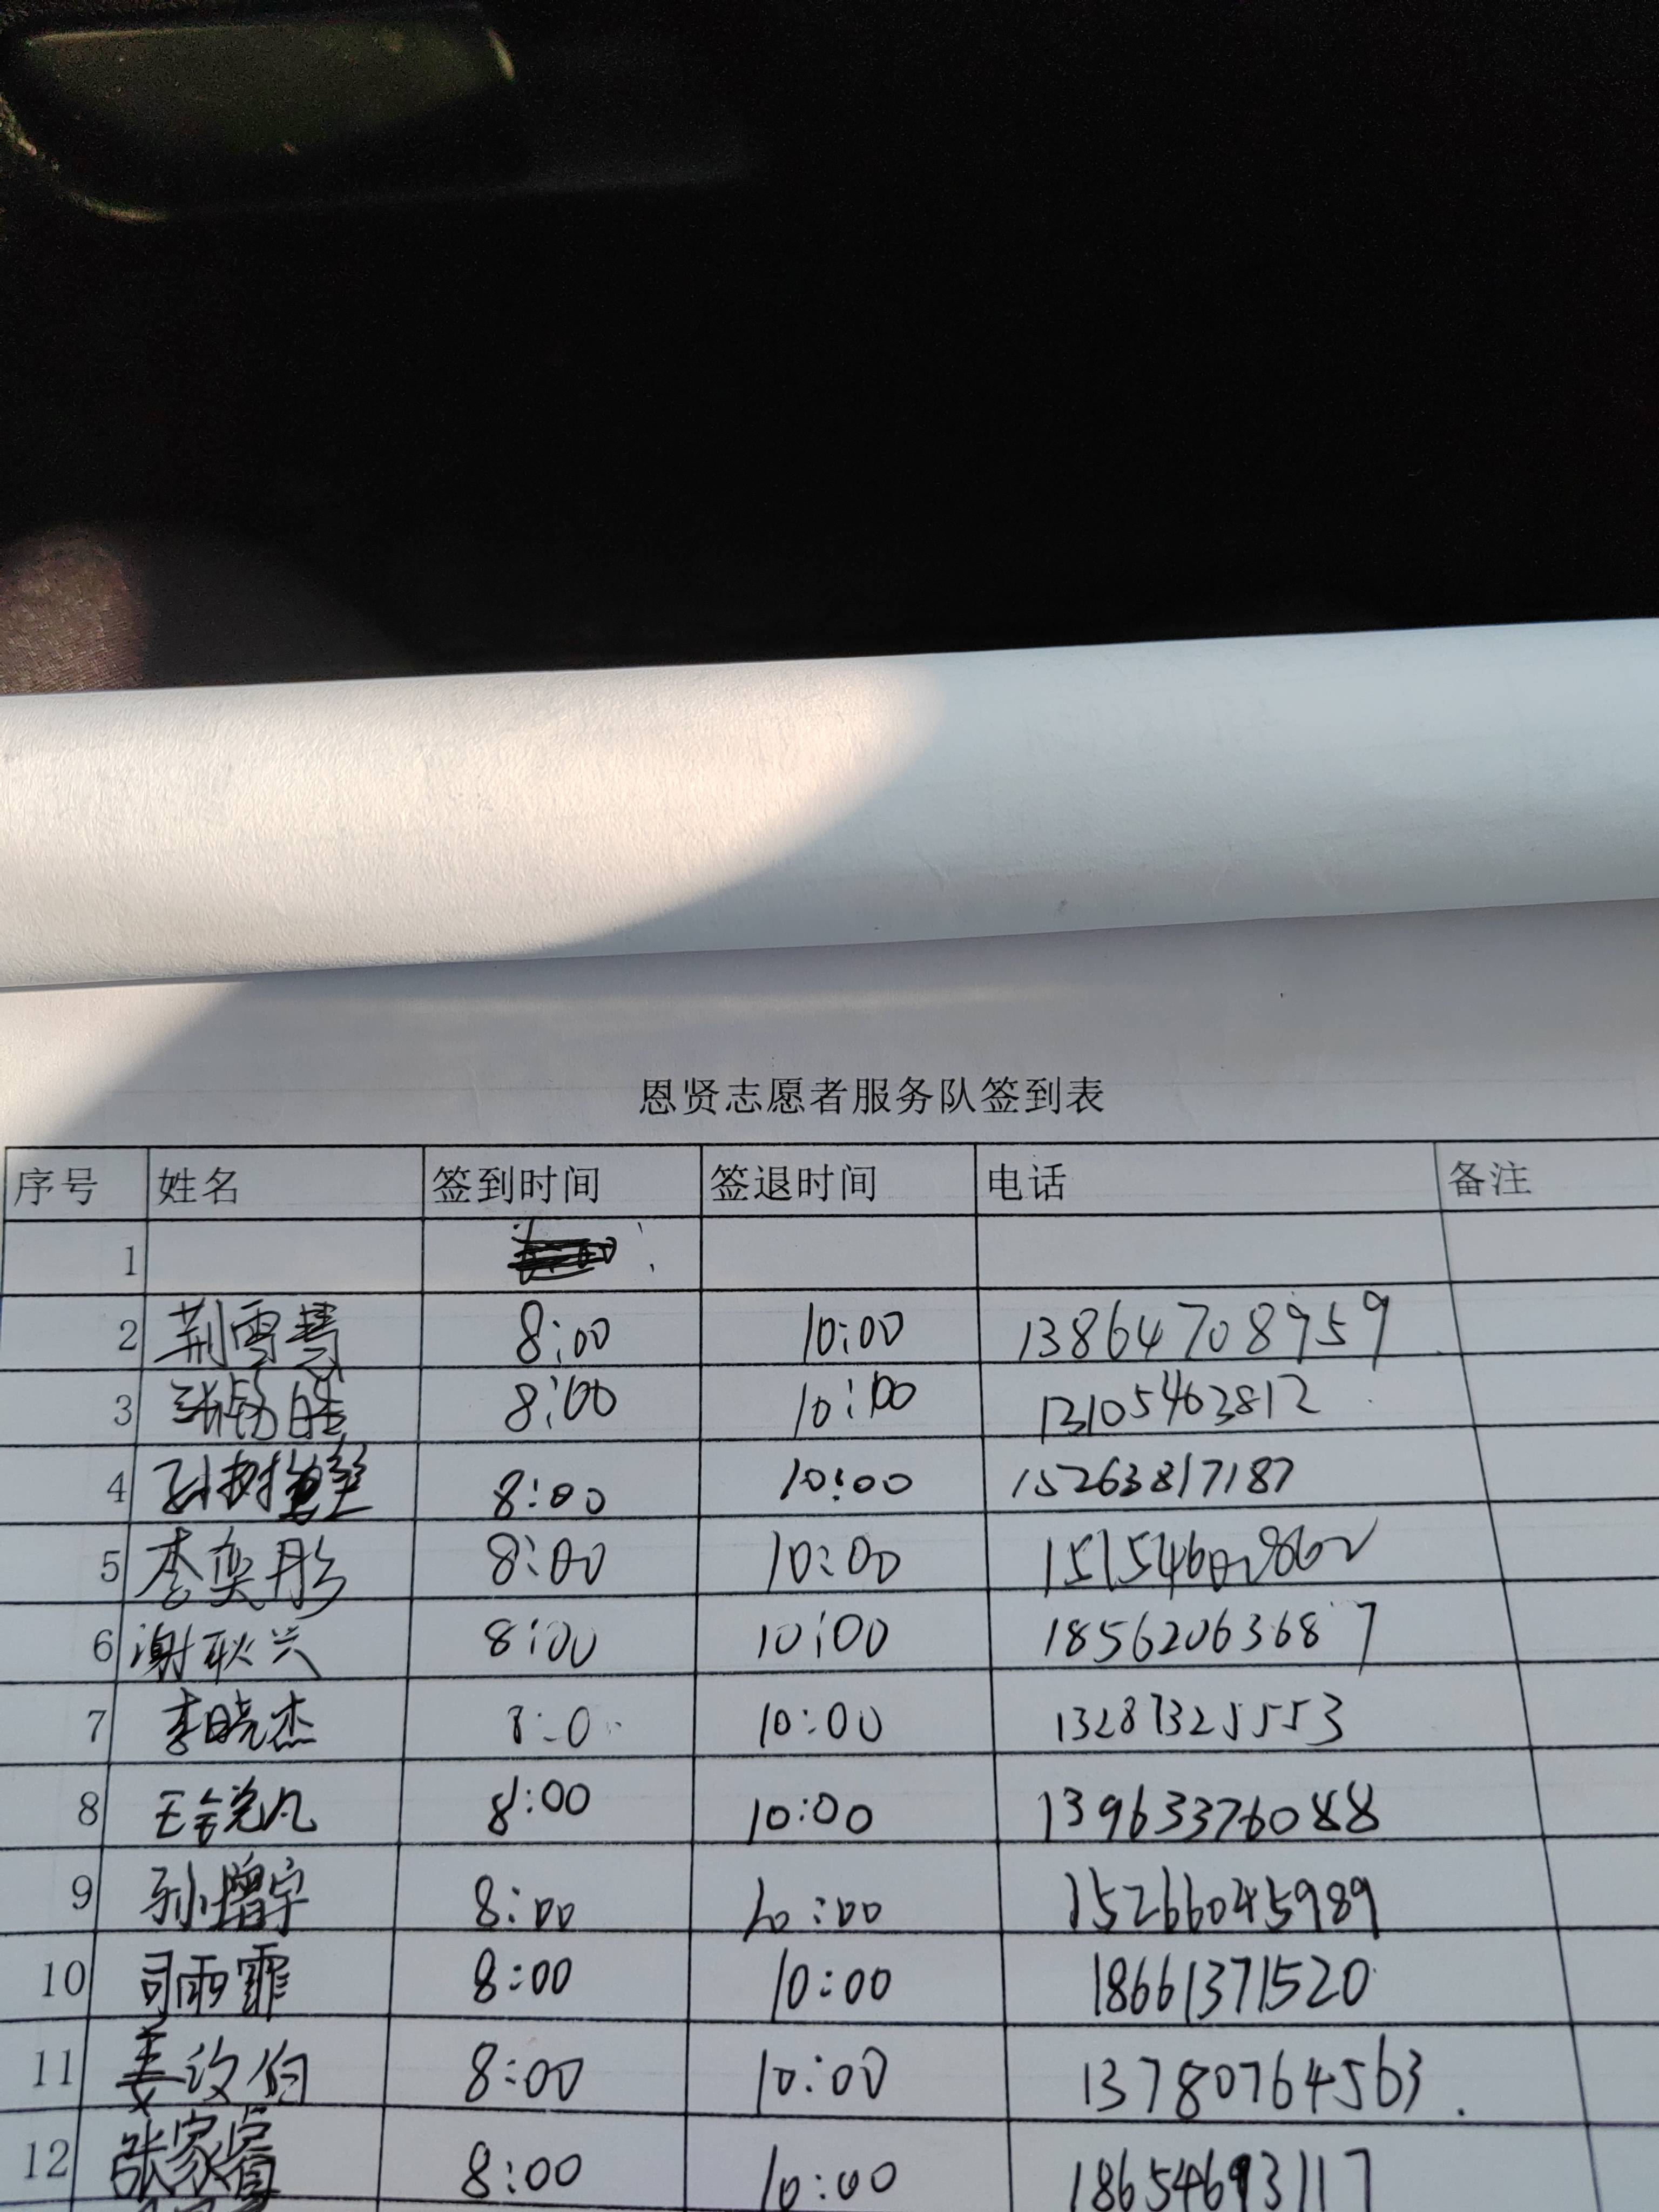 恩贤志愿者服务队签到表
序号 姓名 签到时间 签退时间 电话 备注
1
2 荆雪慧 8:00 10:00 13864708959
3 8:00 10:00 13105463812
4 8:00 10:00 15263817187
5 李奕彤 8:00 10:00
6 谢耿兴 8:00 10:00 18562063687
7 李晓杰 8:0 10:00 13287325553
8 王锐凡 8:00 10:00 13963376088
9 孙增宇 8:00 10:00 15266045989
10 司雨霏 8:00 10:00 18661371520
11 姜汶伯 8:00 10:00 13780764563.
12 张家睿 8:00 10:00 18654693117